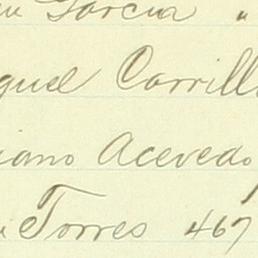 Garcia "
guel Carrill
iano Acevedo
Torres 467